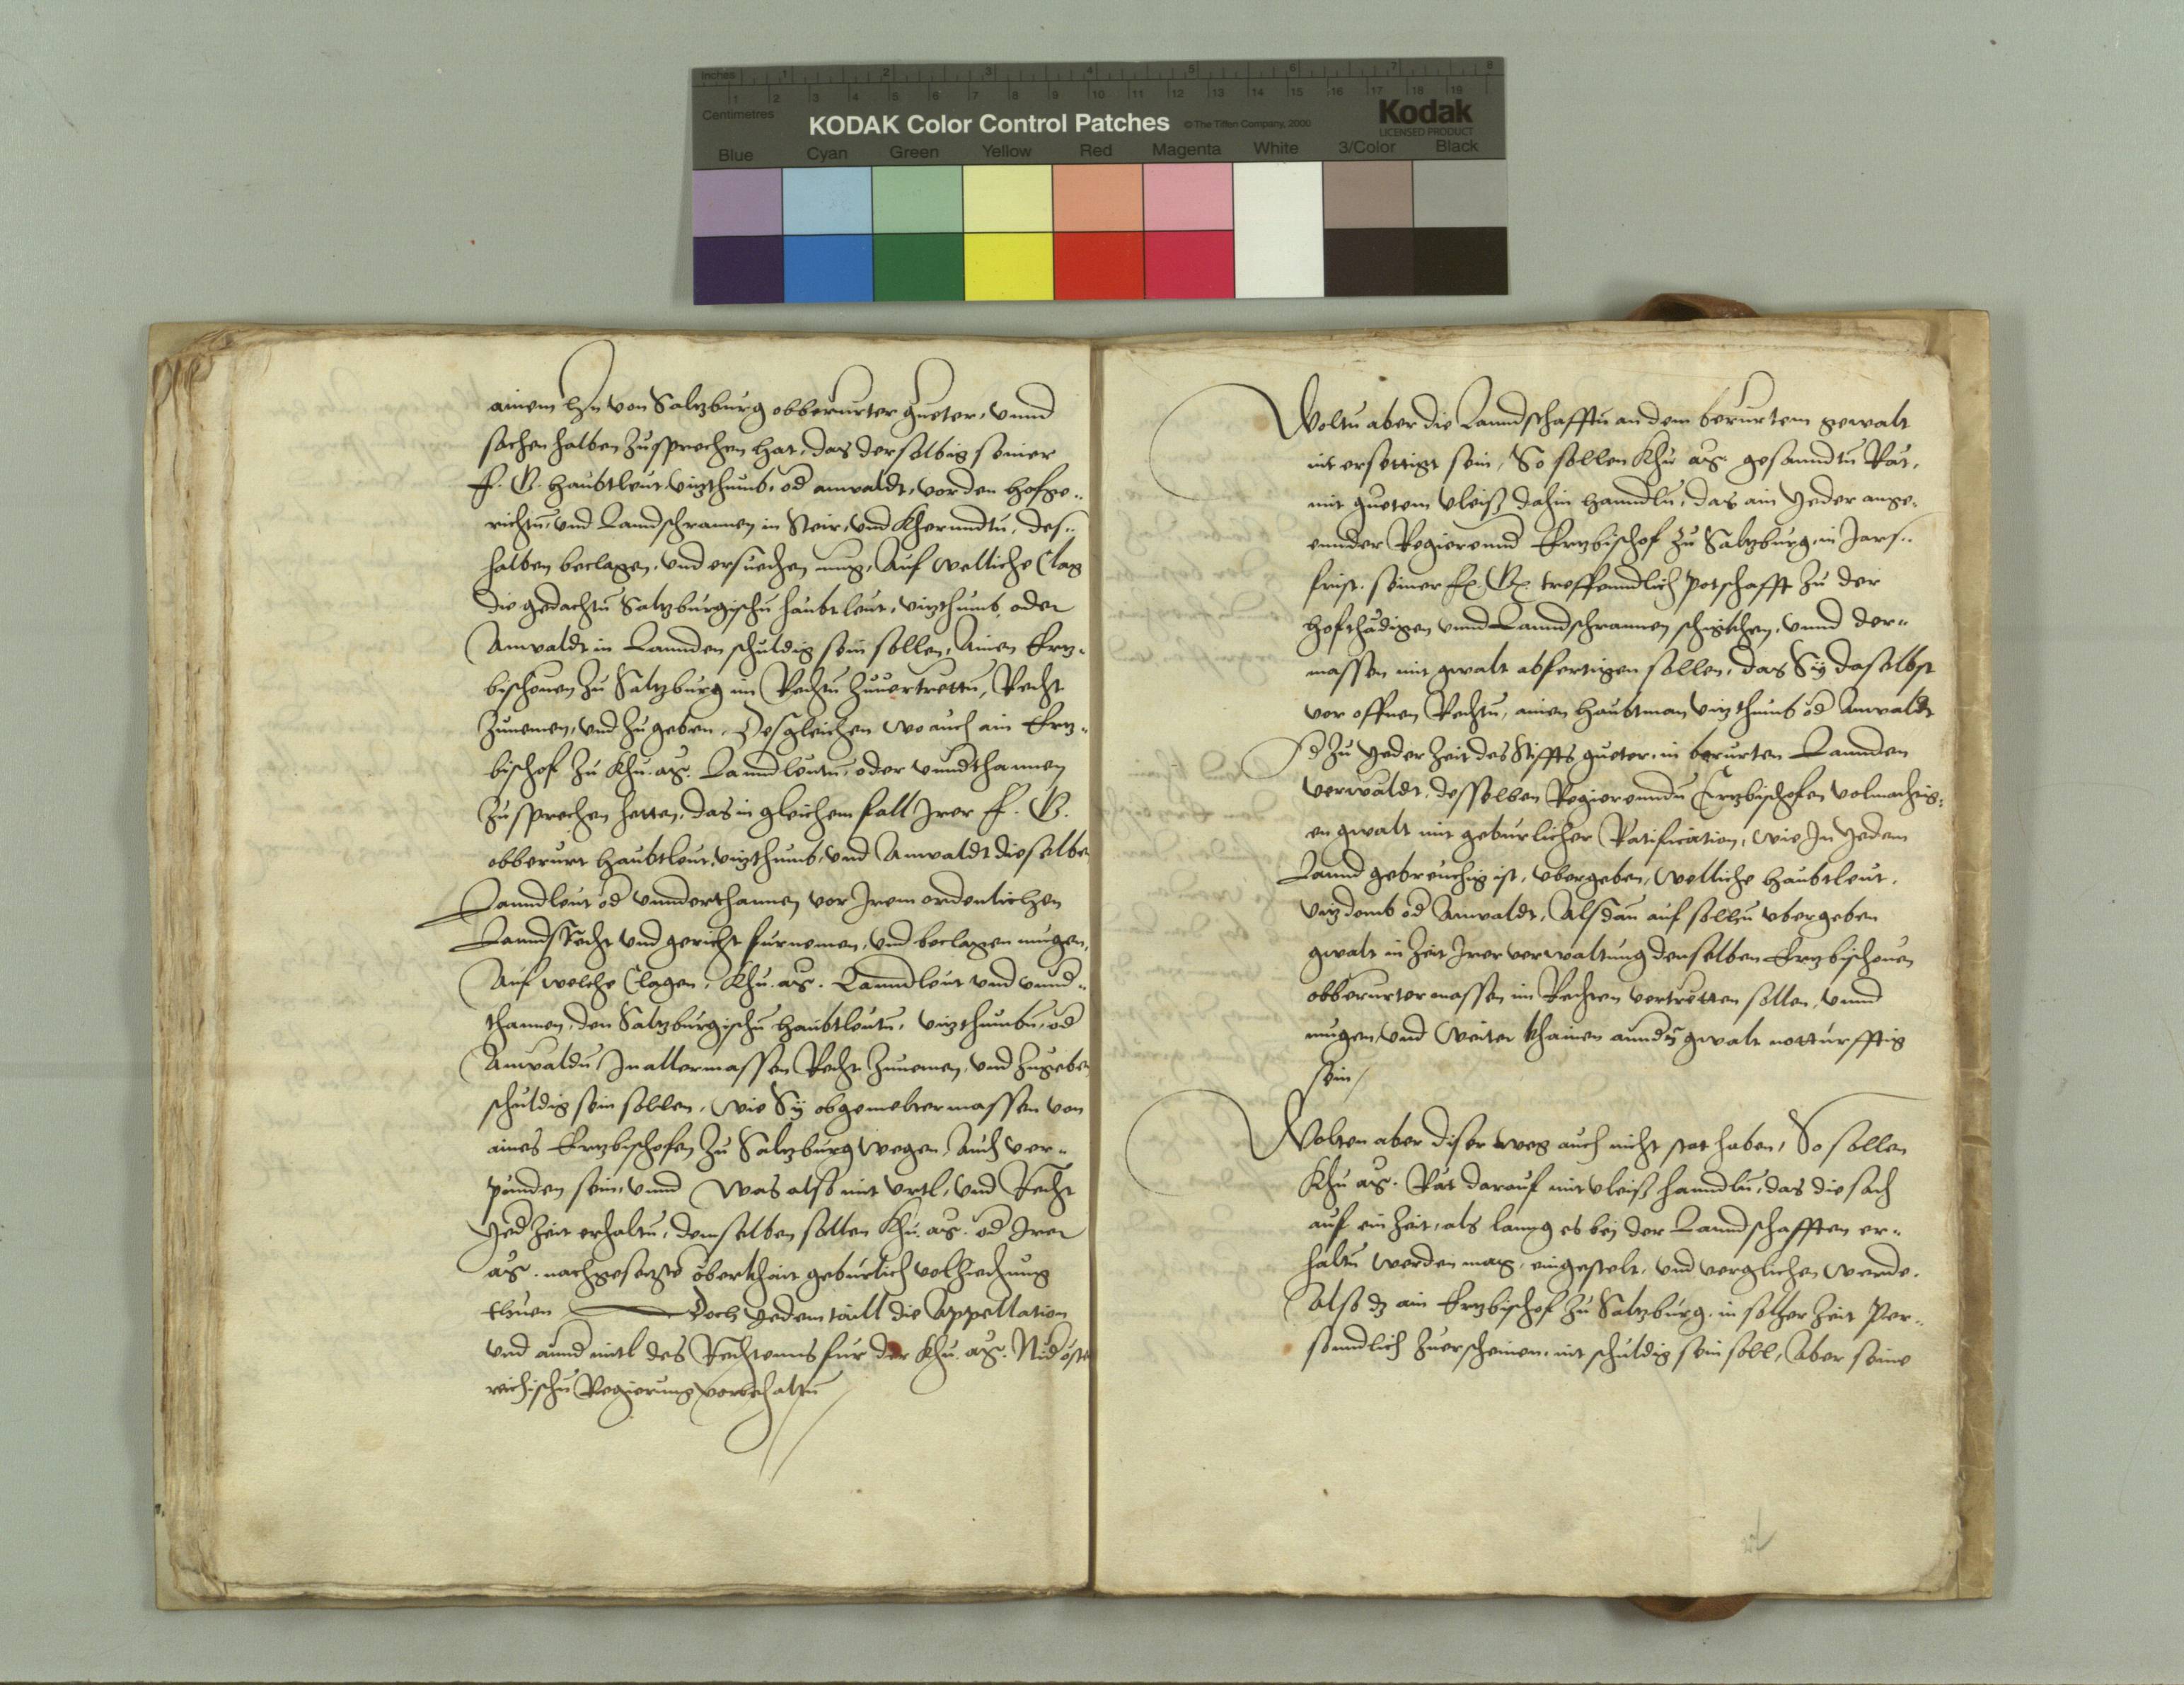 Inches 1 2 3 4 5 6 7 8
Centimetres 1 2 3 4 5 6 7 8 9 10 11 12 13 14 15 16 17 18 19
KODAK Color Control Patches ©The Tiffen Company, 2000 Kodak
LICENSED PRODUCT
Blue Cyan Green Yellow Red Magenta White 3/Color Black
ainem von Saltzburg obberurter gueter, vnnd
sachen halben zusprechen hat, das derselbig seiner
F. G. haubtleut, vitzthumb, od anwaldt, vor den hofge„
richtn, vnd Lanndschrannen in Steir, vnd Kherndtn, des„
halben beclagen, vnd ersuechen mug, Auf welliche Clag
die gedachtn Saltzburgischn haubtleut, vitzthumb, oder
Anwaldt in Lannden schuldig sein sollen, Ainen Ertz„
bischouen zu Saltzburg im Rechtn zuuertrettn, Recht
zunemen, vnd zugeben, Desgleichen wo auch ain Ertz„
bischof zu Khu. Lanndleutn, oder vnndthannen
zusprechen hetten, das in gleichem fall Irer F. G.
obberurt haubtleut, vitzthumb, vnd Anwaldt dieselben
Lanndleut od vnnderthannen vor Irem ordenlichen
Lanndsrecht vnd gericht furnemen, vnd beclagen mugen,
Auf welche Clagen, Khu. Lanndleut vnd vnnd„
thannen, den Saltzburgischn haubtleutn, vitzthumbn, od
Anwaldn, In allermassen Recht zunemen, vnd zugeben
schuldig sein sollen, wie Sy obgemelter massen von
aines Ertzbischofen zu Saltzburg wegen, Auch ver„
punden sein, vnnd Was also mit vrtl, vnd Recht
Yed zeit erhaltn, demselben sollen Khu. od Irer
nachgesetzte oberkhait geburlich volziechung
thuen Doch yedem taill die Appellation
vnd annd mitl des Rechtenns fur der Khu. Nidöste
reichischn Regierung vorbehaltn
Woltn aber die Lanndschafftn an dem berurtem gewalt
nit ersettigt sein, So sollen Khu gesanndtn Rät,
mit guetem vleiß dahin hanndln, das ain Yeder ange„
ennder Regierennd Ertzbischof zu Saltzburg, in Jars„
frist, seiner treffenndlich potschafft zu der
hofthädigen vnnd Lanndschrannen schigkhen, vnnd der„
massen mit gwalt abfertigen sollen, das Sy daselbst
vor offnen Rechtn, ainen haubtman vitzthumb od Anwaldt
So zu Yeder zeit des Stiffts gueter, in berurten Lannden
verwaldt, desselben Regierenndn Ertzbischofen volmechtig„
en gwalt mit geburlicher Ratification, wie In Yedem
Lannd gebreuchig ist, vbergeben, Welliche haubtleut,
vitzdomb od Anwaldt, Alsdan auf solhn vbergeben
gwalt in zeit Irer verwaltung denselben Ertzbischouen
obberurter massen im Rechten vertretten sollen, vnnd
mugen, vnd Weiter khainen annd gwalt notturfftig
sein
Wolten aber diser weg auch nicht stat haben, So sollen
Khu Rät darauf mit vleiß hanndln, das die sach
auf ein zeit, als lanng es bei der Lanndschafften er„
haltn werden mag, eingestelt, vnd verglichen werde.
Also dz ain Ertzbischof zu Saltzburg, in solher zeit Per„
sondlich zuerscheinen, nit schuldig sein soll, Aber seine